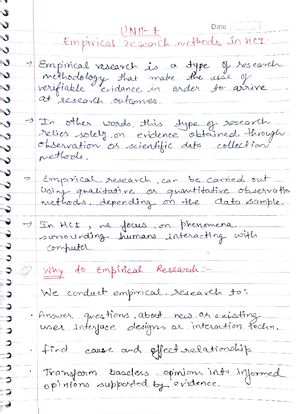 UNIT-I
Date
Empirical research methods in HCI
→ Empirical research is a type of research
methodology that make the use of
verifiable evidance in order to arrive
at research outcomes.
→ In other words, this type of research
relies solely on evidence obtained through
observation or scientific data collection
methods.
→ Empirical research can be carried out
using qualitative or quantitative observation
methods, depending on the data sample.
→ In HCI, we focus on phenomena
surrounding humans interacting with
computer.
Why do Empirical Research:-
We conduct empirical research to:
· Answer questions about new or existing
user interface designs or interaction techn.
· find cause and effect relationship
· Transform baseless opinions into informed
opinions supported by evidence.